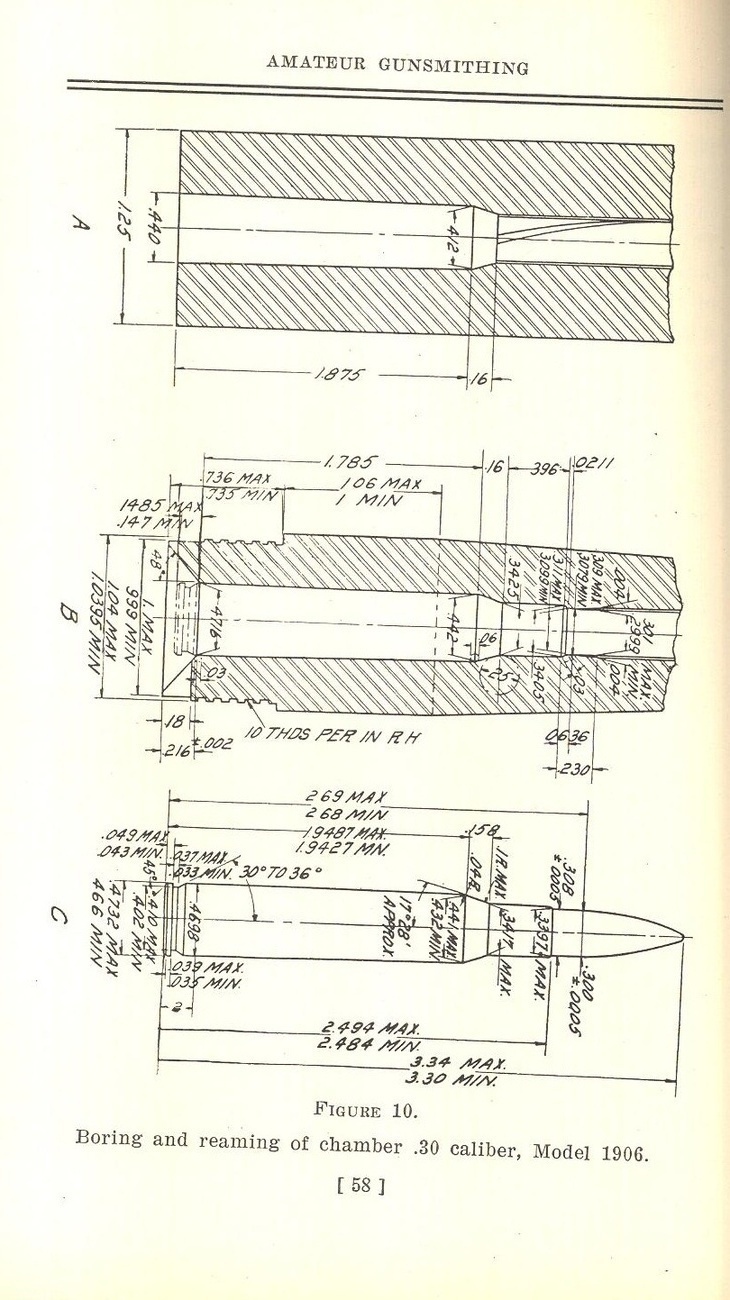 AMATEUR GUNSMITHING
1.25
.440
.412
A
1.875
.16
1.785
.16
.396
.0211
.736 MAX
.735 MIN
1.06 MAX
1 MIN
.1485 MAX
.147 MIN
48°
.4716
.442
.06
.3425
.311 MAX
.3099 MIN
.309 MAX
.3079 MIN
.004
.301 MAX.
.2999 MIN.
.004
1. MAX
.999 MIN
1.04 MAX
1.0395 MIN
B
.03
.25
.3405
.03
.18
.216 ±.002
10 THDS PER IN R H
.0636
.230
2.69 MAX
2.68 MIN
1.9487 MAX.
1.9427 MN.
.158
.049 MAX
.043 MIN.
.037 MAX
.033 MIN.
30° TO 36°
45°
.04 R.
.1 R. MAX
.308
±.0005
.4698
17° 28'
APPROX
.441 MAX.
.432 MIN
.3417 MAX.
.3397 MAX.
.300
±.0005
.410 MAX
.402 MIN
.4732 MAX
.466 MIN
C
.039 MAX.
.035 MIN.
.2
2.494 MAX.
2.484 MIN.
3.34 MAX.
3.30 MIN.
FIGURE 10.
Boring and reaming of chamber .30 caliber, Model 1906.
[ 58 ]